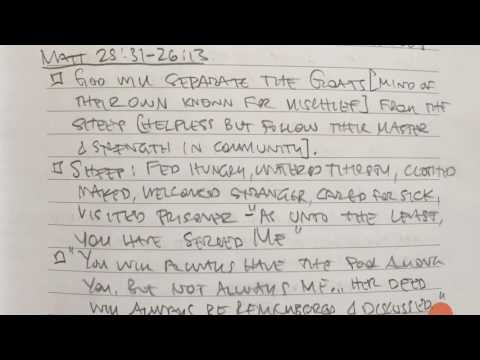 MATT 25:31-26:13
□ GOD WILL SEPARATE THE GOATS [MIND OF
THEIR OWN KNOWN FOR MISCHIEF] FROM THE
SHEEP [HELPLESS BUT FOLLOW THEIR MASTER
& STRENGTH IN COMMUNITY].
□ SHEEP: FED HUNGRY, WATERED THIRSTY, CLOTHED
NAKED, WELCOMED STRANGER, CARED FOR SICK,
VISITED PRISONER - "AS UNTO THE LEAST,
YOU HAVE SERVED ME"
□ "YOU WILL ALWAYS HAVE THE POOR AMONG
YOU, BUT NOT ALWAYS ME... HER DEED
WILL ALWAYS BE REMEMBERED & DISCUSSED"